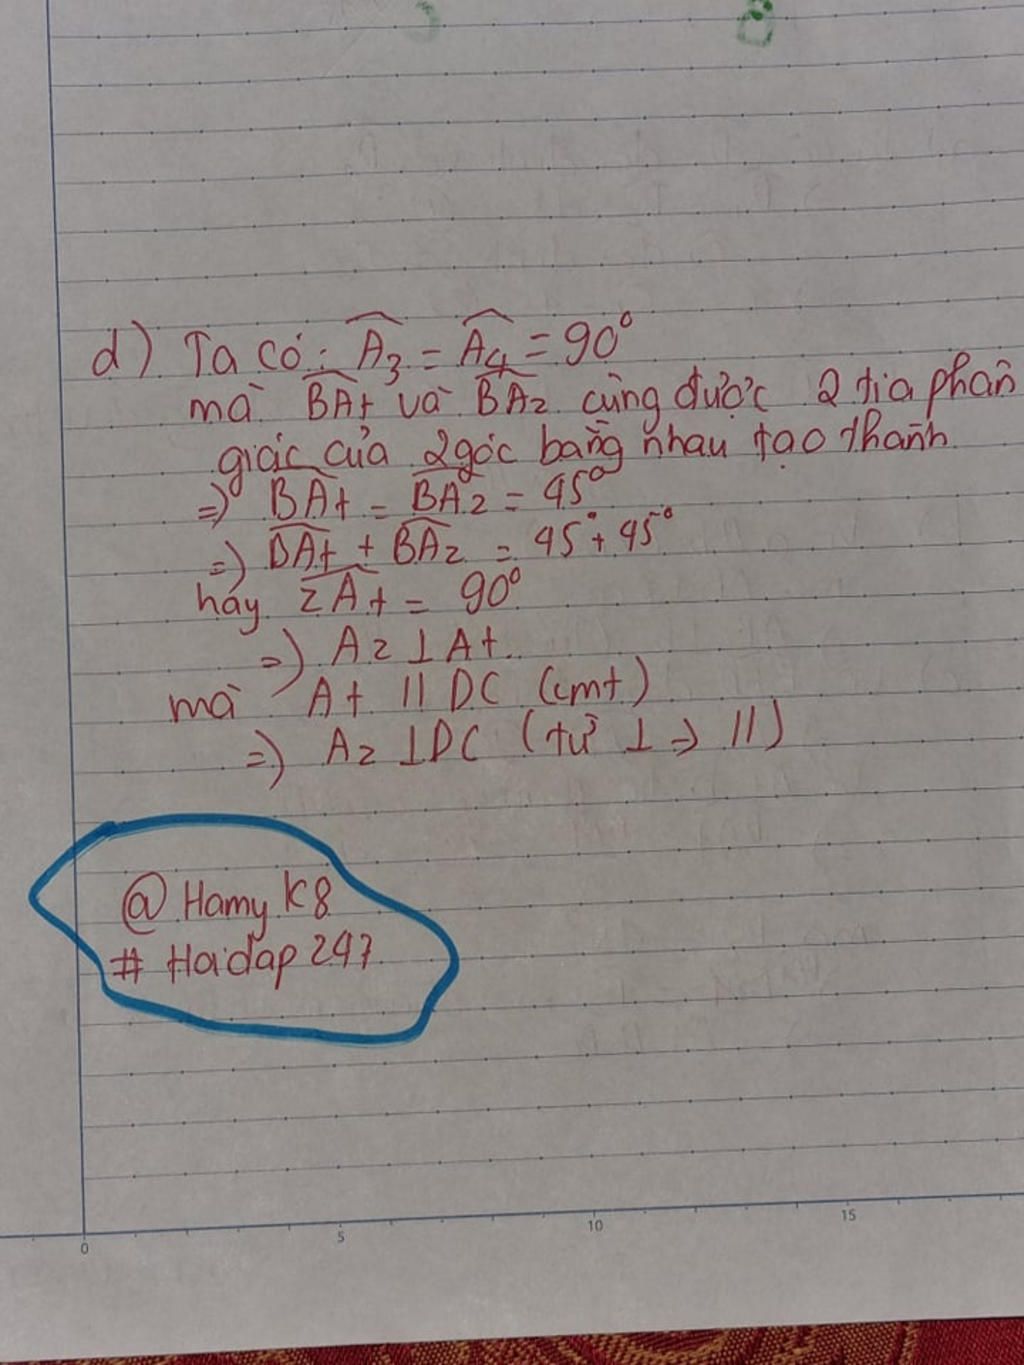 d) Ta có: Â3 = Â4 = 90°
mà BAt và BAz cũng được 2 tia phân
giác của 2 góc bằng nhau tạo thành
=) BAt = BAz = 45°
=) BAt + BAz = 45° + 45°
hay zAt = 90°
=) Az ⊥ At
mà At || DC (cmt)
=) Az ⊥ DC (từ ⊥ → //)
@ Hamy K8
# Hoidap 247
0 5 10 15